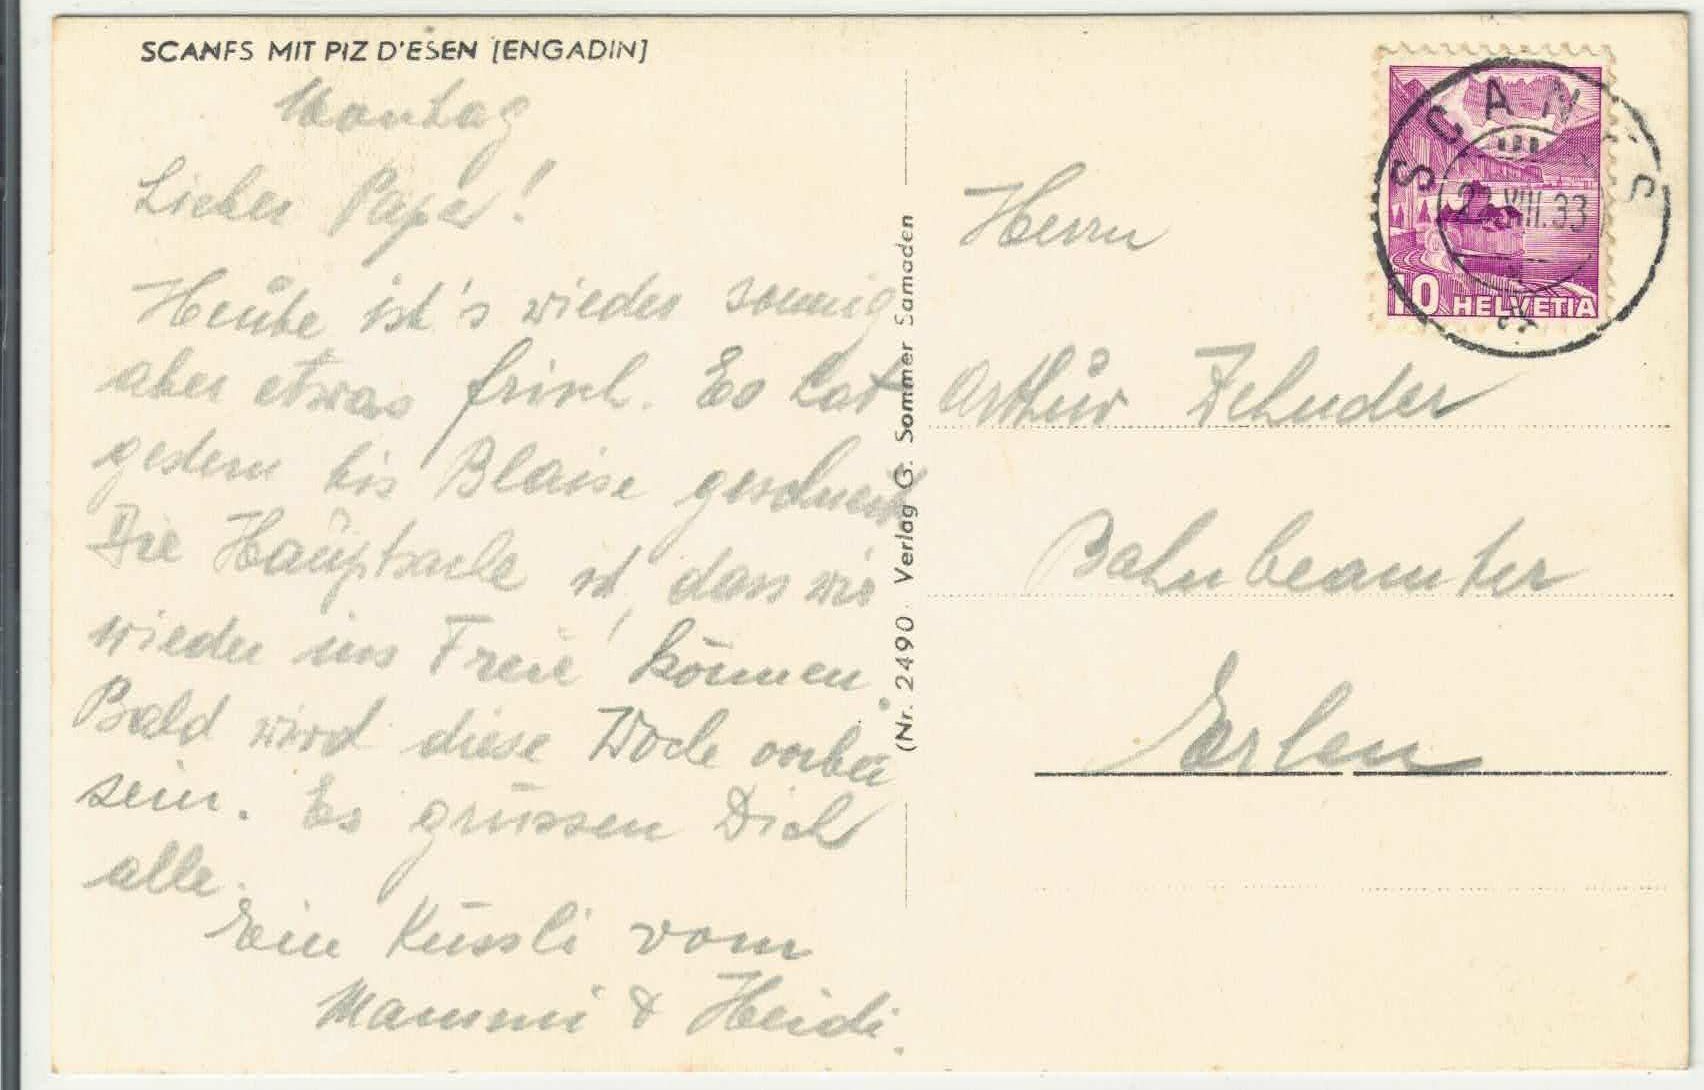 SCANFS MIT PIZ D'ESEN [ENGADIN]
Montag
Lieber Papa!
Heute ist's wieder sonnig
aber etwas frisch. Es hat
gestern bis Blaise geschneit
Die Hauptsache ist, dass wir
wieder ins Freie können.
Bald wird diese Woche vorbei
sein. Es grüssen Dich
alle.
Ein Küssli vom
Mammi & Heidi.
(Nr. 2490 Verlag G. Sommer Samaden
SCANFS
22.VIII.33
10 HELVETIA
Herrn
Arthur Zehnder
Bahnbeamter
Erlen